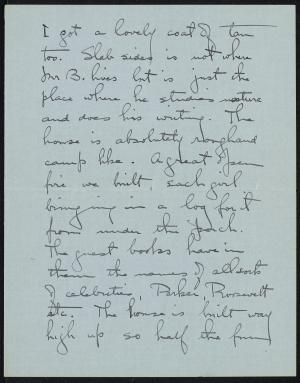 I got a lovely coat of tan
too. Slab sides is not where
Mr B. lives but is just the
place where he studies nature
and does his writing. The
house is absolutely rough and
camp like. A great open
fire we built, each girl
bringing in a log for it
from under the porch.
The guest books have in
them the names of all sorts
of celebrities, Parker, Roosevelt
etc. The house is built way
high up so half the